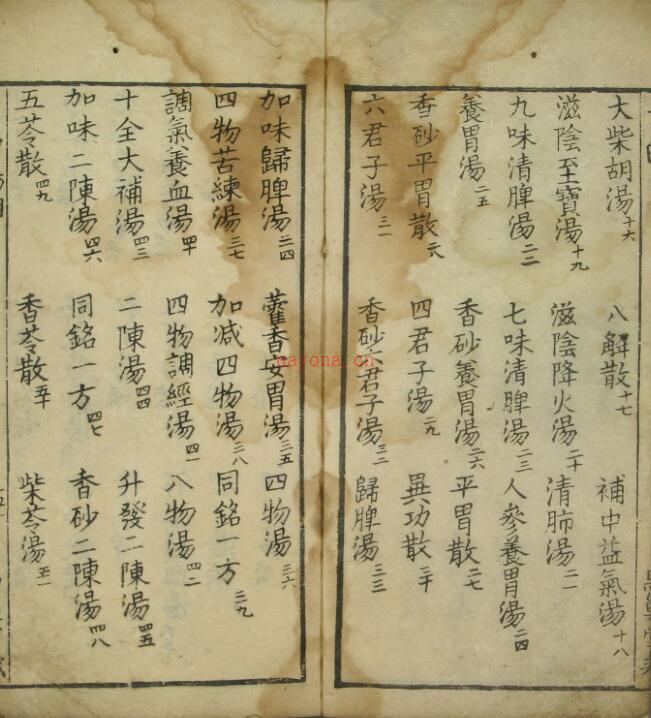 大柴胡湯十六 八解散十七 補中益氣湯十八
滋陰至寶湯十九 滋陰降火湯二十 清肺湯二一
九味清脾湯二二 七味清脾湯二三 人參養胃湯二四
養胃湯二五 香砂養胃湯二六 平胃散二七
香砂平胃散二八 四君子湯二九 異功散三十
六君子湯三一 香砂六君子湯三二 歸脾湯三三
加味歸脾湯三四 藿香安胃湯三五 四物湯三六
四物苦練湯三七 加减四物湯三八 同銘一方三九
調氣養血湯四十 四物調經湯四一 八物湯四二
十全大補湯四三 二陳湯四四 升發二陳湯四五
加味二陳湯四六 同銘一方四七 香砂二陳湯四八
五苓散四九 香苓散五十 柴苓湯五一
nayona.cn